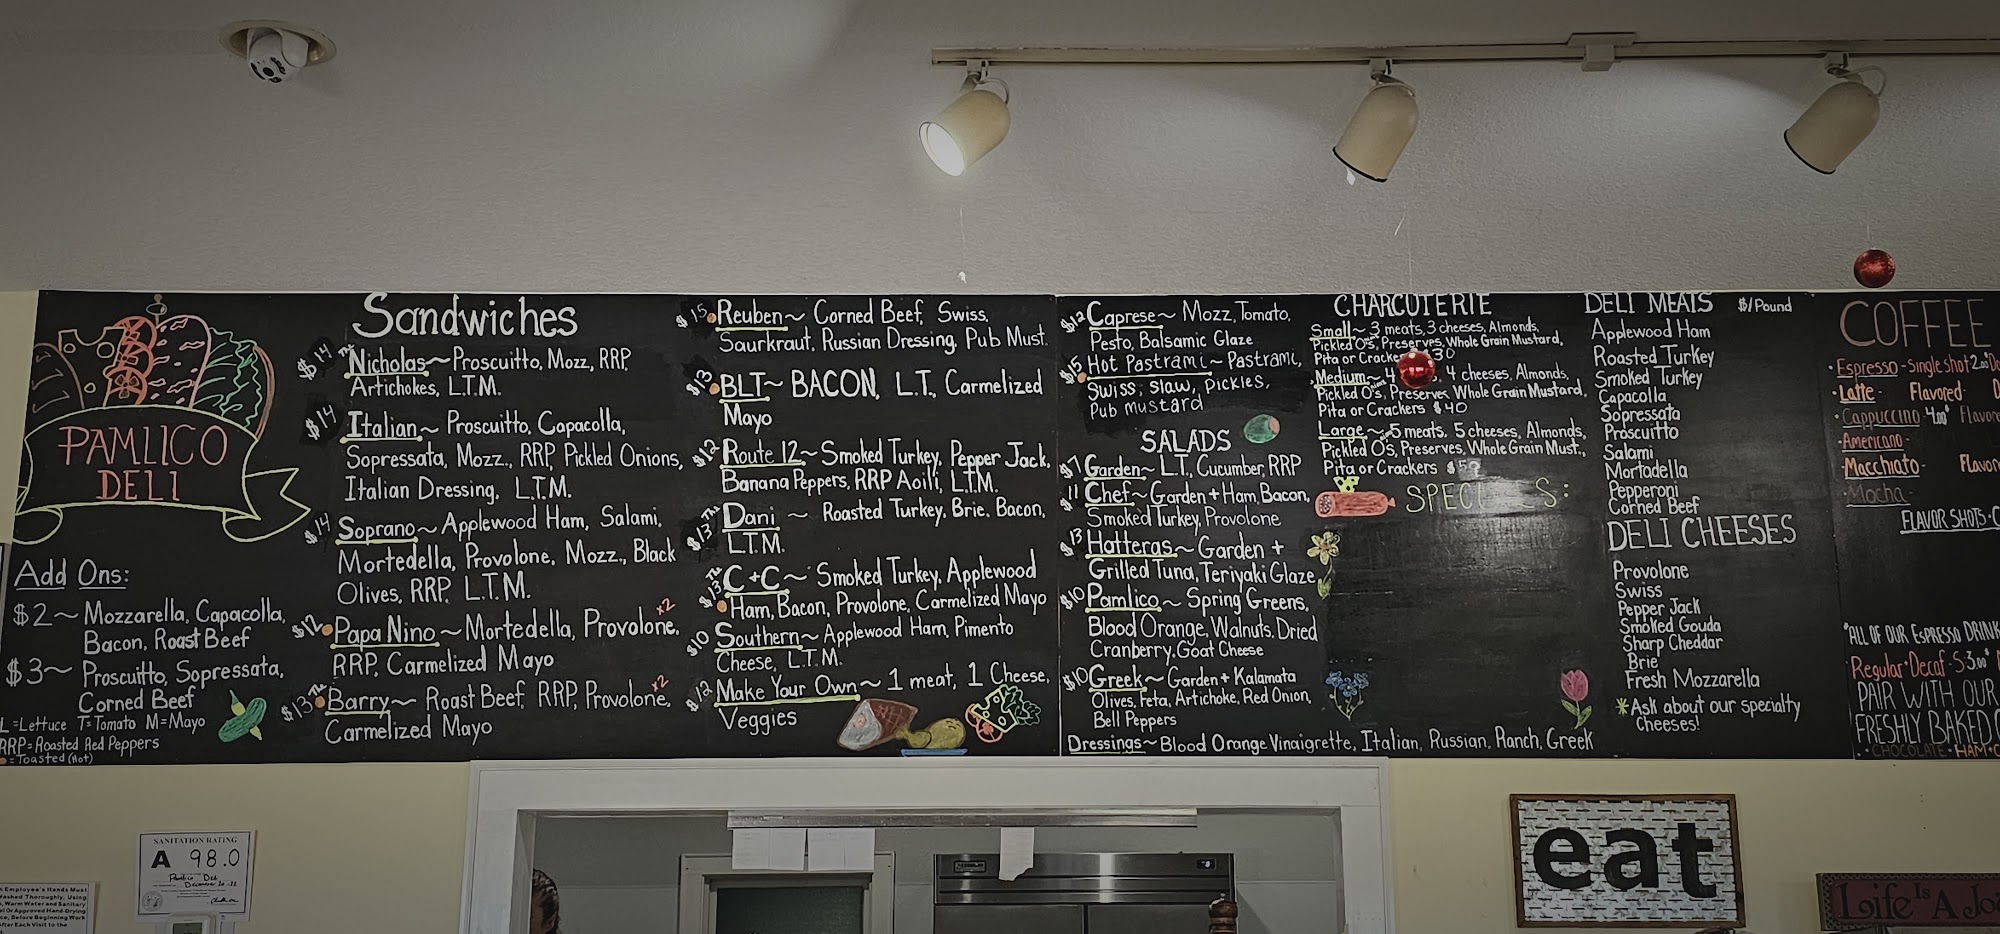 PAMLICO
DELI
Add Ons:
$2~ Mozzarella, Capacolla,
Bacon, Roast Beef
$3~ Proscuitto, Sopressata,
Corned Beef
L=Lettuce T=Tomato M=Mayo
RRP=Roasted Red Peppers
=Toasted (Hot)
Sandwiches
$14 The Nicholas~ Proscuitto, Mozz, RRP,
Artichokes, L.T.M.
$14 Italian~ Proscuitto, Capacolla,
Sopressata, Mozz., RRP, Pickled Onions,
Italian Dressing, L.T.M.
$14 Soprano~ Applewood Ham, Salami,
Mortedella, Provolone, Mozz., Black
Olives, RRP, L.T.M.
$12 Papa Nino~ Mortedella, Provolone, x2
RRP, Carmelized Mayo
$13 The Barry~ Roast Beef, RRP, Provolone, x2
Carmelized Mayo
$15 Reuben~ Corned Beef, Swiss,
Saurkraut, Russian Dressing, Pub Must.
$13 BLT~ BACON, L.T., Carmelized
Mayo
$12 Route 12~ Smoked Turkey, Pepper Jack,
Banana Peppers, RRP Aoili, L.T.M.
$13 The Dani ~ Roasted Turkey, Brie, Bacon,
L.T.M.
$13 The C+C~ Smoked Turkey, Applewood
Ham, Bacon, Provolone, Carmelized Mayo
$10 Southern~ Applewood Ham, Pimento
Cheese, L.T.M.
$12 Make Your Own~ 1 meat, 1 Cheese,
Veggies
$12 Caprese~ Mozz, Tomato,
Pesto, Balsamic Glaze
$15 Hot Pastrami~ Pastrami,
Swiss, slaw, pickles,
Pub mustard
SALADS
$7 Garden~ L.T., Cucumber, RRP
$11 Chef~ Garden + Ham, Bacon,
Smoked Turkey, Provolone
$13 Hatteras~ Garden +
Grilled Tuna, Teriyaki Glaze
$10 Pamlico~ Spring Greens,
Blood Orange, Walnuts, Dried
Cranberry, Goat Cheese
$10 Greek~ Garden + Kalamata
Olives, Feta, Artichoke, Red Onion,
Bell Peppers
Dressings~ Blood Orange Vinaigrette, Italian, Russian, Ranch, Greek
CHARCUTERIE
Small~ 3 meats, 3 cheeses, Almonds,
Pickled O's, Preserves, Whole Grain Mustard,
Pita or Crackers 30
Medium~ 4 4 cheeses, Almonds,
Pickled O's, Preserves, Whole Grain Mustard,
Pita or Crackers $40
Large~ 5 meats, 5 cheeses, Almonds,
Pickled O's, Preserves, Whole Grain Must.,
Pita or Crackers
SPECIALS:
DELI MEATS $/Pound
Applewood Ham
Roasted Turkey
Smoked Turkey
Capacolla
Sopressata
Proscuitto
Salami
Mortadella
Pepperoni
Corned Beef
DELI CHEESES
Provolone
Swiss
Pepper Jack
Smoked Gouda
Sharp Cheddar
Brie
Fresh Mozzarella
*Ask about our specialty
Cheeses!
COFFEE
·Espresso-Single Shot 2.00
·Latte- Flavored-
·Cappuccino 4.00
·Americano-
·Macchiato-
·Mocha-
FLAVOR SHOTS
*ALL OF OUR ESPRESSO DRINK
Regular·Decaf-S·3.00
PAIR WITH OUR
FRESHLY BAKED
CHOCOLATE·HAM
SANITATION RATING
A 98.0
Pamlico Deli
Employee's Hands Must
Washed Thoroughly, Using
Warm Water and Sanitary
Or Approved Hand-Drying
Before Beginning Work
After Each Visit to the
eat
Life Is A